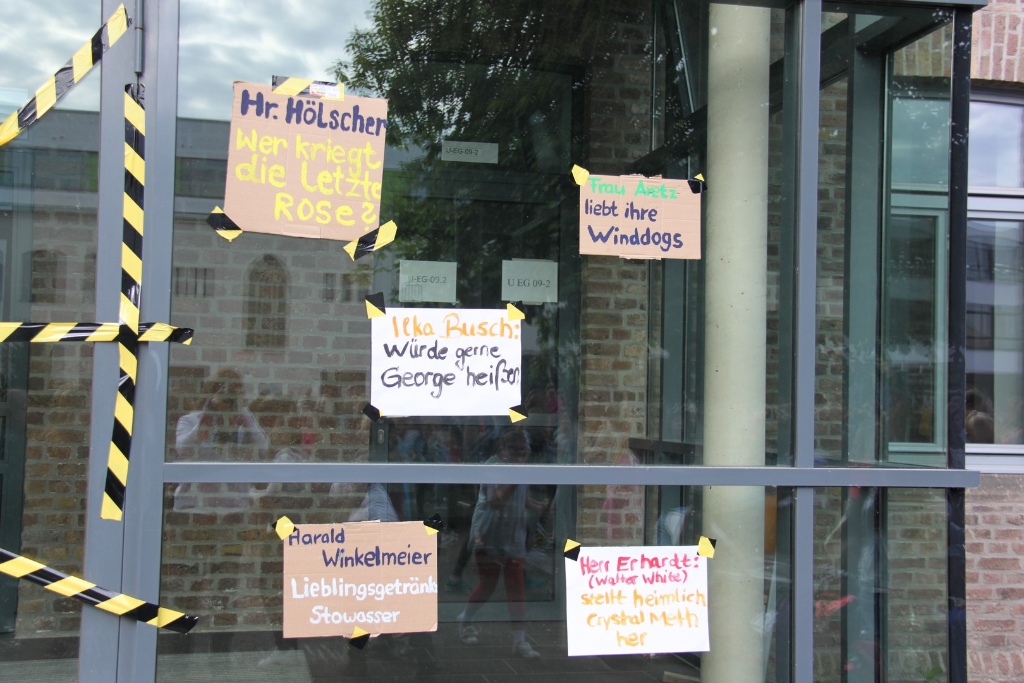 Hr. Hölscher
Wer kriegt
die Letzte
Rose?
U-EG-09-2
Frau Aretz
liebt ihre
Winddogs
U-EG-09.2
U EG 09-2
Ilka Busch:
Würde gerne
George heißen
Harald
Winkelmeier
Lieblingsgetränk
Stowasser
Herr Erhardt:
(Walter White)
stellt heimlich
Crystal Meth
her